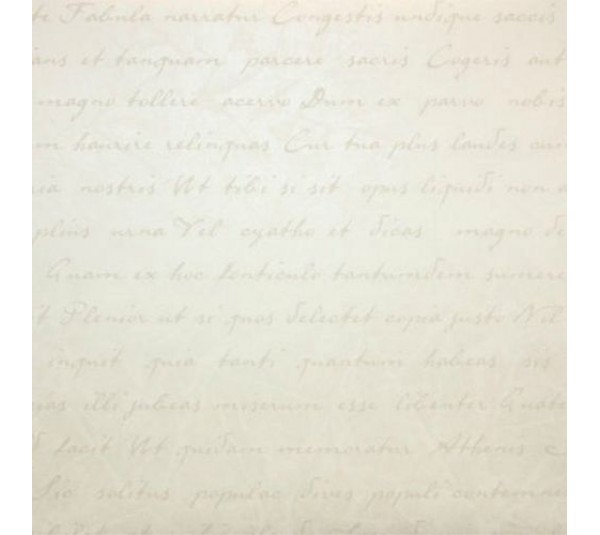 te Fabula narratur Congestis undique saccis
ans et tanquam parcere sacris Cogeris aut
magno tollere acervo Dum ex parvo nobis
m haurire relinquas Cur tua plus laudes cum
ia nostris Ut tibi si sit opus liquidi non a
plius urna Vel cyatho et dicas magno de
Quam ex hoc fonticulo tantumdem sumere
t Plenior ut si quos delectet copia justo Vil
inquit quia tanti quantum habeas sis
ias illi jubeas miserum esse libenter Quate
d facit Ut quidam memoratur Athenis
Sic solitus populac dives populi contemne